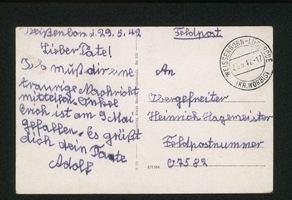 Weißenborn d. 29.5.42
Lieber Pate!
Ich muß dir eine
traurige Nachricht
mitteilen. Onkel
Erich ist am 9 Mai
gefallen. Es grüßt
dich dein Pate
Adolf
Feldpost
An
Obergefreiter
Heinrich Hagemeister
Feldpostnummer
07582
WEISSENBORN-LÜDERODE
(KR. WORBIS)